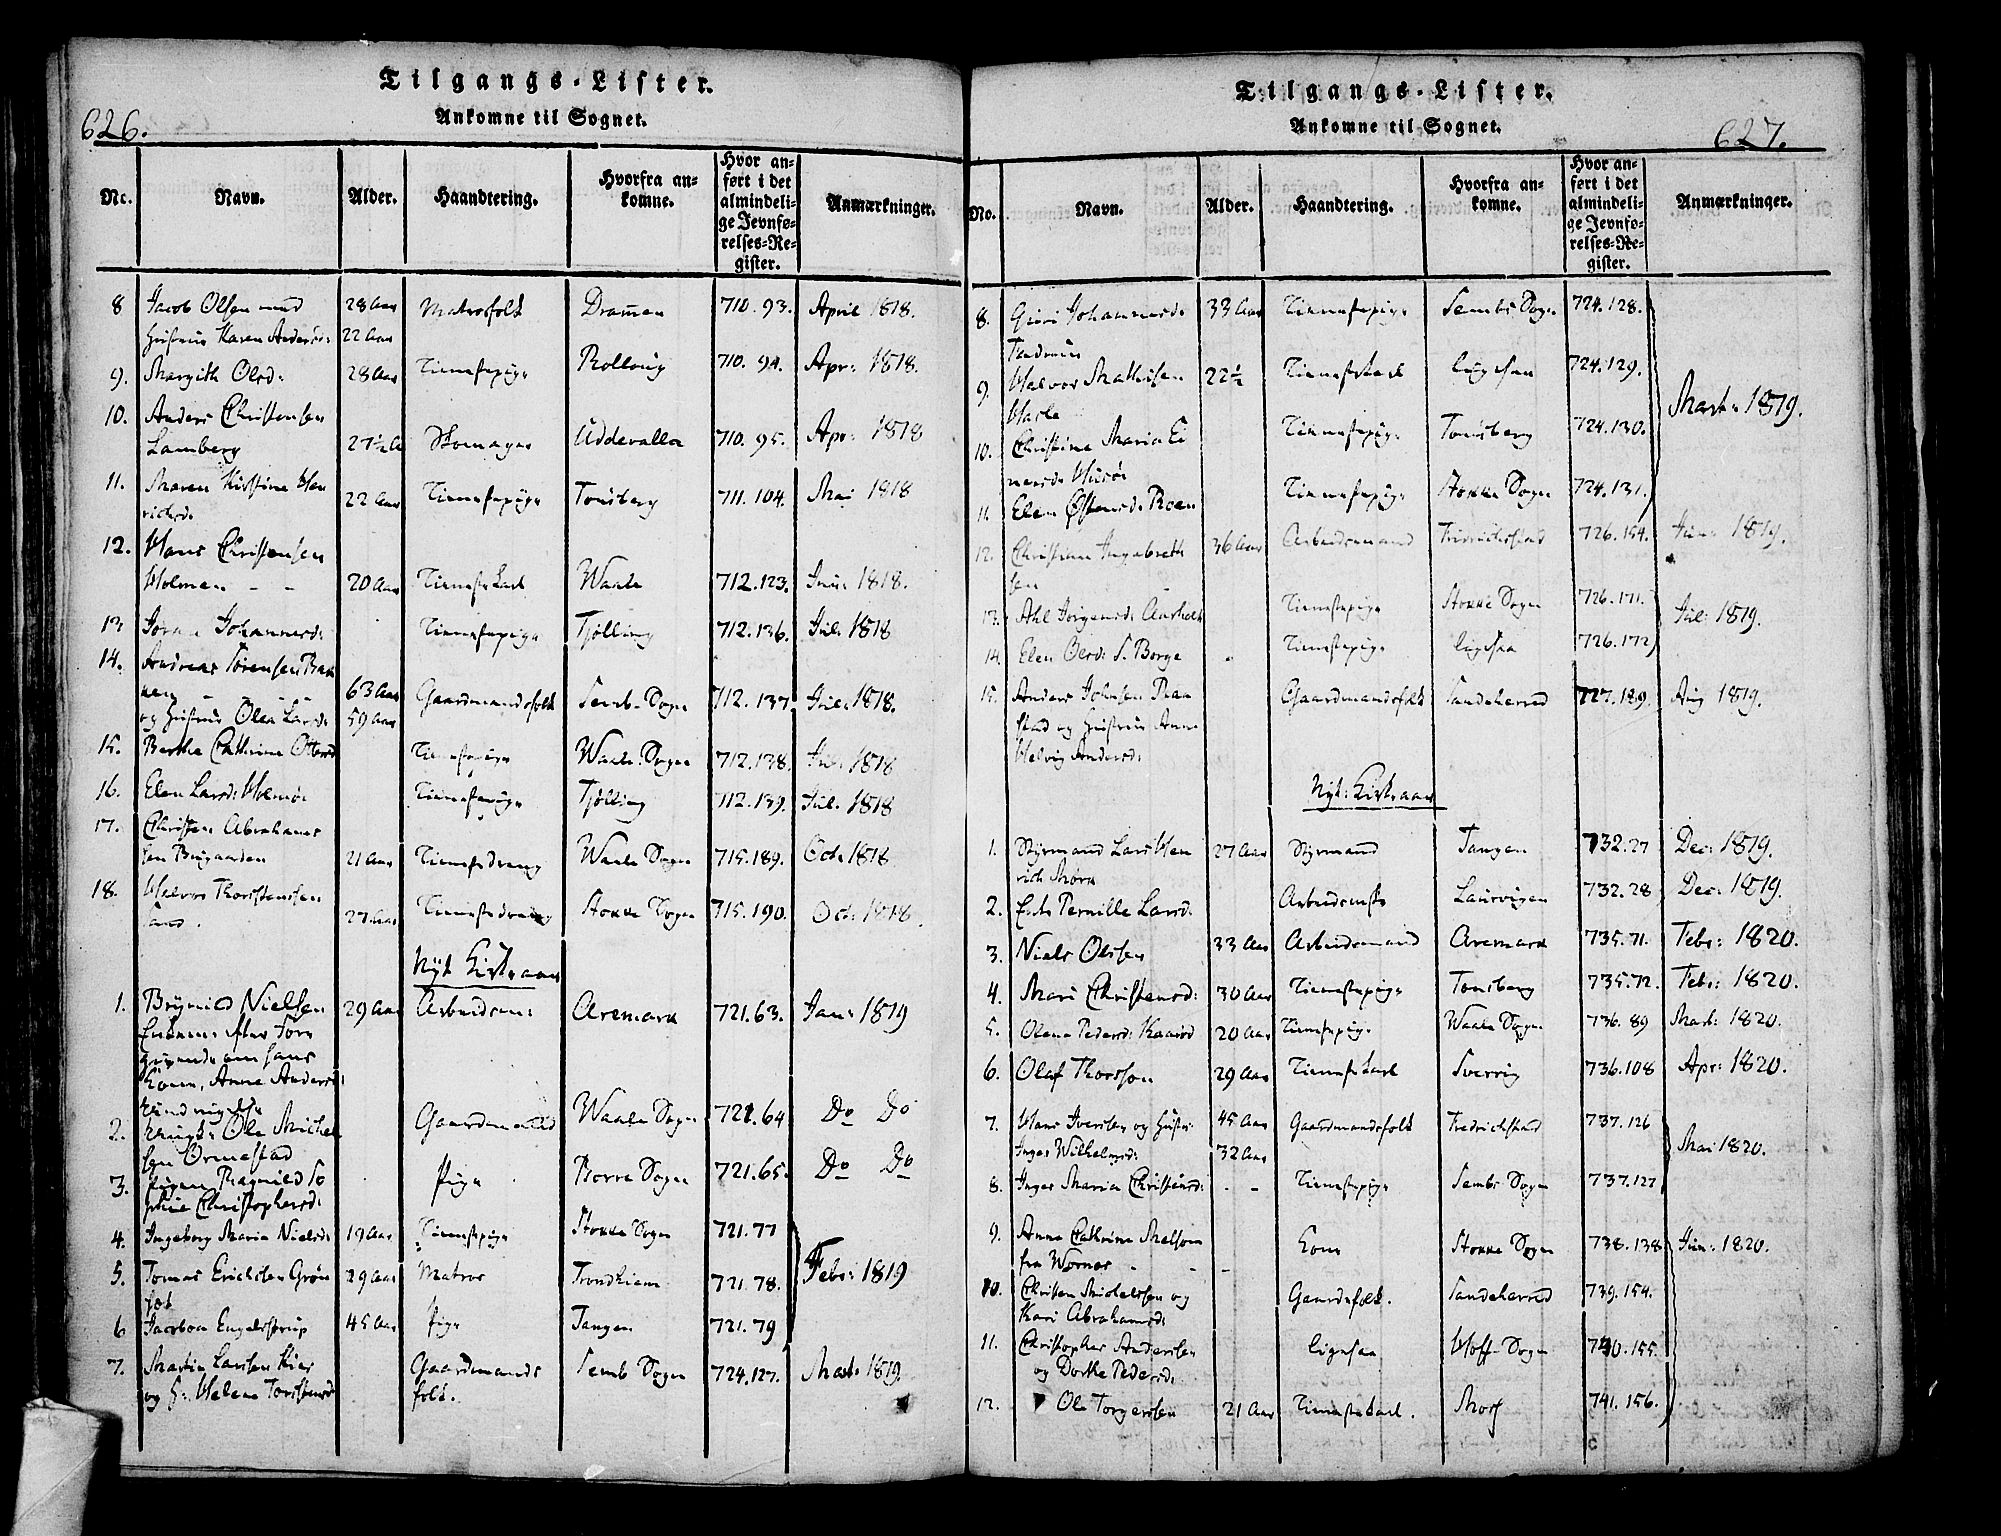 626.
Tilgangs-Lister.
Ankomne til Sognet.
No. Navn. Alder. Haandtering. Hvorfra ankomne. Hvor anført i det almindelige Jevnførelses-Register. Anmærkninger.
8 Jacob Olsen med 28 Aar Matrosfolk Drammen 710. 93. April 1818.
Hustrue Karen Andersd: 22 Aar
9. Margith Olsd: 28 Aar Tienestepige Rolloug 710. 94. Apr: 1818.
10. Anders Christensen
Lamberg 27½ A Skomager Uddevalla 710. 95. Apr: 1818
11. Maren Kirstine Hen
richsd: 22 Aar Tienestepige Tonsberg 711. 104. Mai 1818
12. Hans Christensen
Holmen - - 20 Aar Tieneste Karl Waale 712. 123. Juni 1818.
13 Johannesd: Tienestepige Tjølling 712. 136. Jul: 1818
14. Andreas Sørensen Bak
ken 63 Aar Gaardmandsfolk Semb-Sogn 712. 137. Jul: 1818.
og Hustrue Olea Larsd: 59 Aar
15. Berthe Cathrine Olsd Tienestepige Waale-Sogn 712. 138. Jul: 1818
16. Elen Larsd: Holmøe Tienestepige Tjølling 712. 139. Jul: 1818
17. Christen Abrahams
sen Bugaarden 21 Aar Tienestedreng Waale Sogn 715. 189. Oct: 1818
18. Halvor Thorstenssen
27 Aar Tienestedreng Stokke Sogn 715. 190. Oct: 1818.
Nyt Kirkeaar
1. Brynild Nielsen 29 Aar Arbeidsm: Aremark 721. 63. Jan: 1819
Enkem: efter Fore
givende om hans
Kone, Anne Andersd:
2. Ole Michel Gaardmand Waale Sogn 721. 64 Do Do
sen Ormestad
3. Pigen Ragnild So Pige Borre Sogn 721. 65. Do Do
phie Christophersd:
4. Ingeborg Maria Nielsd: 19 Aar Tienestepige Stokke Sogn 721. 77
5. Tomas Erichsen Grøn 29 Aar Matros Trondhiem 721. 78. Febr: 1819
6 Jacobea Engelstrup 45 Aar Pige Tangen 721. 79
7. Martin Larssen Kier Gaardmands Semb Sogn 724. 127. Mart: 1819.
og H: Helene Torstensd folk.
627.
Tilgangs-Lister.
Ankomne til Sognet.
No. Navn. Alder. Haandtering. Hvorfra ankomne. Hvor anført i det almindelige Jevnførelses-Register. Anmærkninger.
8. Giøri Johannesd: 33 Aar Tienestepige Sembs Sogn 724. 128.
9. Halvor Mathisen 22½ Tienestekarl ligesaa 724. 129. Mart: 1819.
10. Christine Maria Ei Tienestepige Tonsberg 724. 130.
nersd: Husøe
11. Elen Østensd: Roen Tienestepige Stokke Sogn 724. 131.
12. Christian Ingebreth 36 Aar Arbeidsmand Fridrichsstad 726. 154. Jun: 1819.
sen
13. Jørgensd: Aarholt Tienestepige Stokke Sogn 726. 171. Jul: 1819.
14. Elen Olsd: S. Borge Tienestepige ligesaa 726. 172
15. Anders Johnsen Raa Gaardmandsfolk Sandeherred 727. 189. Aug 1819.
stad og Hustrue Anne
Helvig Andersd:
Nyt: Kirkeaar
1. Styrmand Lars Hen 27 Aar Styrmand Tangen 732. 27 Dec: 1819.
rich Mørk
2. Enke Pernille Larsd: Laurvigen 732. 28 Dec: 1819.
3. Niels Olssen 33 Aar Arbeidsmand Aremark 735. 71. Febr: 1820.
4. Mari Christensd: 30 Aar Tienestepige Tonsberg 735. 72. Febr: 1820.
5. Olena Pedersd: Kaarød 20 Aar Tienestepige Waale Sogn 736. 89 Mart: 1820.
6. Olaf Thorsson 29 Aar Tienestekarl Sverrig 736. 108 Apr: 1820.
7. Hans Iversen og Hustr: 45 Aar Gaardmandsfolk Fredrichstad 737. 126
Inger Wilhelmsd: 32 Aar Mai 1820.
8. Inger Maria Christensd: - - Tienestepige Sembs Sogn 737. 127
9. Anne Cathrine Melsom Kone Stokke Sogn 738. 138 Jun: 1820.
fra Wornes - - -
10. Christen Michelssen og Gaardsfolk. Sandeherred 739. 154.
Kari Abrahamsd:
11. Christopher Anderssen ligesaa Hoff-Sogn 740. 155.
og Dorthe Pedersd:
12. Ole Torgerssen 21 Aar Tienestekarl. Moss 741. 156.